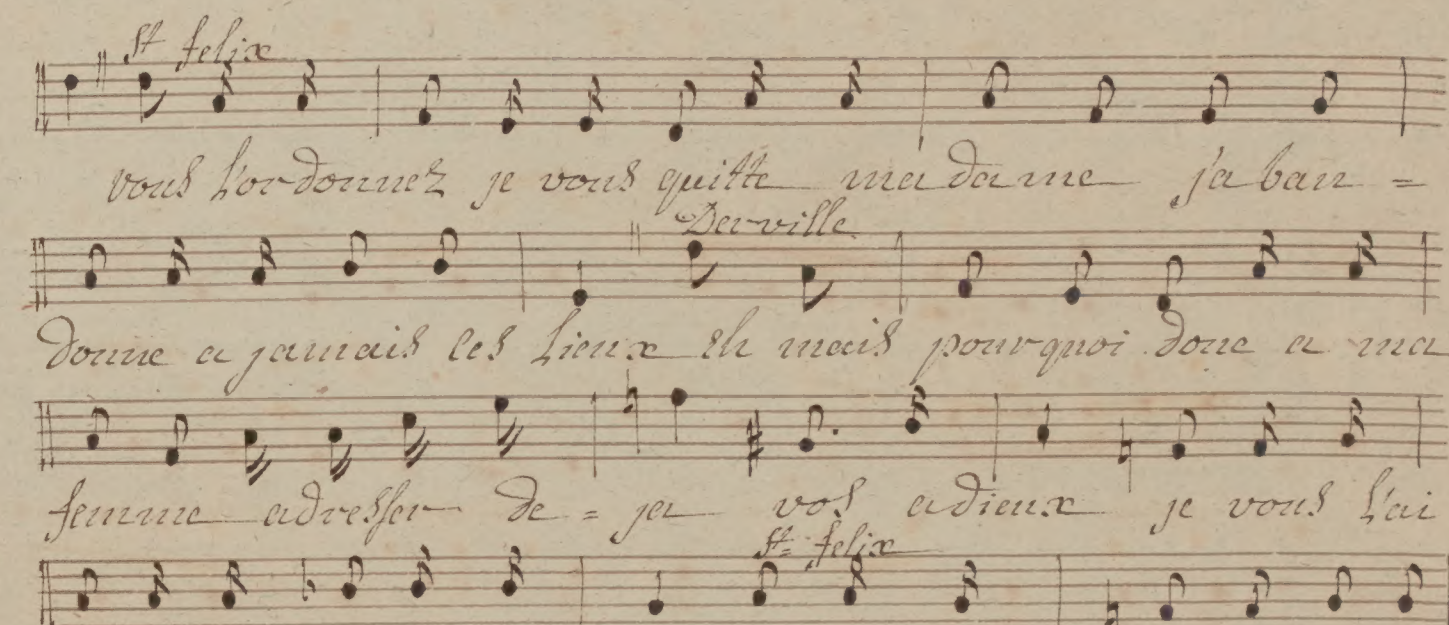 St felix
vous l'ordonnez je vous quitte madame j'aban=
Derville
donne a jamais ces lieux eh mais pourquoi donc a ma
femme adresser de=ja vos adieux je vous l'ai
St felix